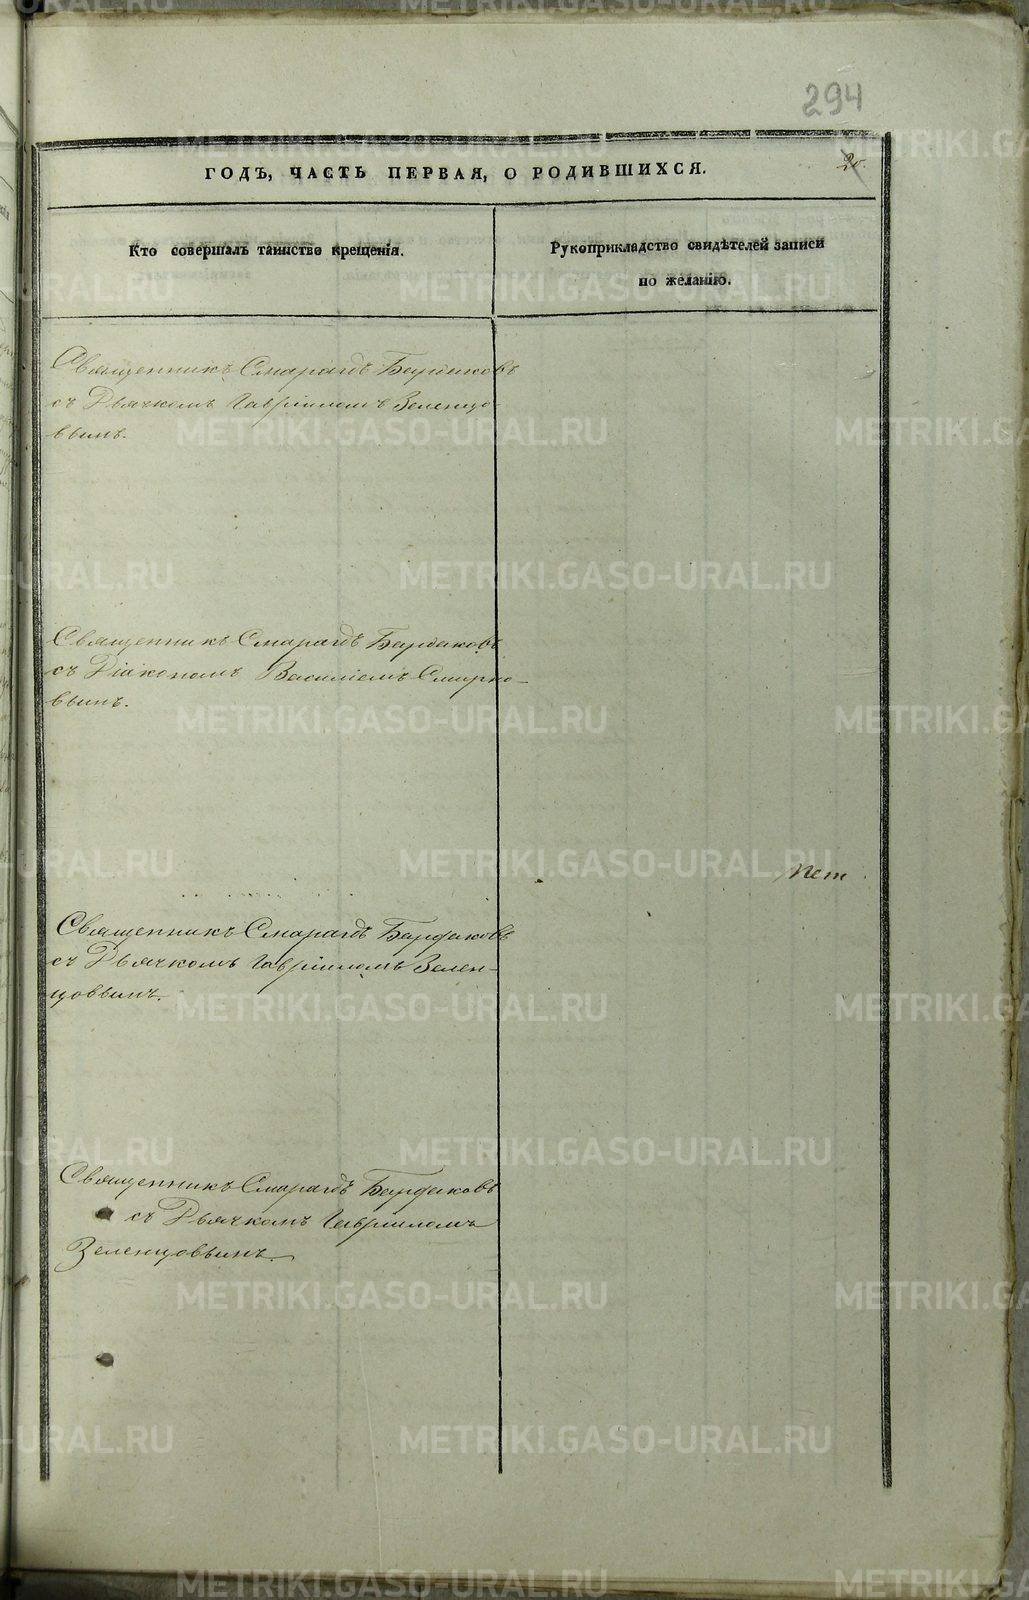 294
ГОДЪ, ЧАСТЬ ПЕРВАЯ, О РОДИВШИХСЯ.
20.
Кто совершалъ таинство крещенія.
Рукоприкладство свидѣтелей записи
по желанію.
Священникъ Смарагдъ Бардаковъ
съ Дьячкомъ Гавріиломъ Зеленцо-
вымъ.
Священникъ Смарагдъ Бардаковъ
съ Діакономъ Василіемъ Смирно-
вымъ.
Нет
Священникъ Смарагдъ Бардаковъ
съ Дьячкомъ Гавріиломъ Зелен-
цовымъ.
Священникъ Смарагдъ Бардаковъ
съ Дьячкомъ Гавріиломъ
Зеленцовымъ.
METRIKI.GASO-URAL.RU